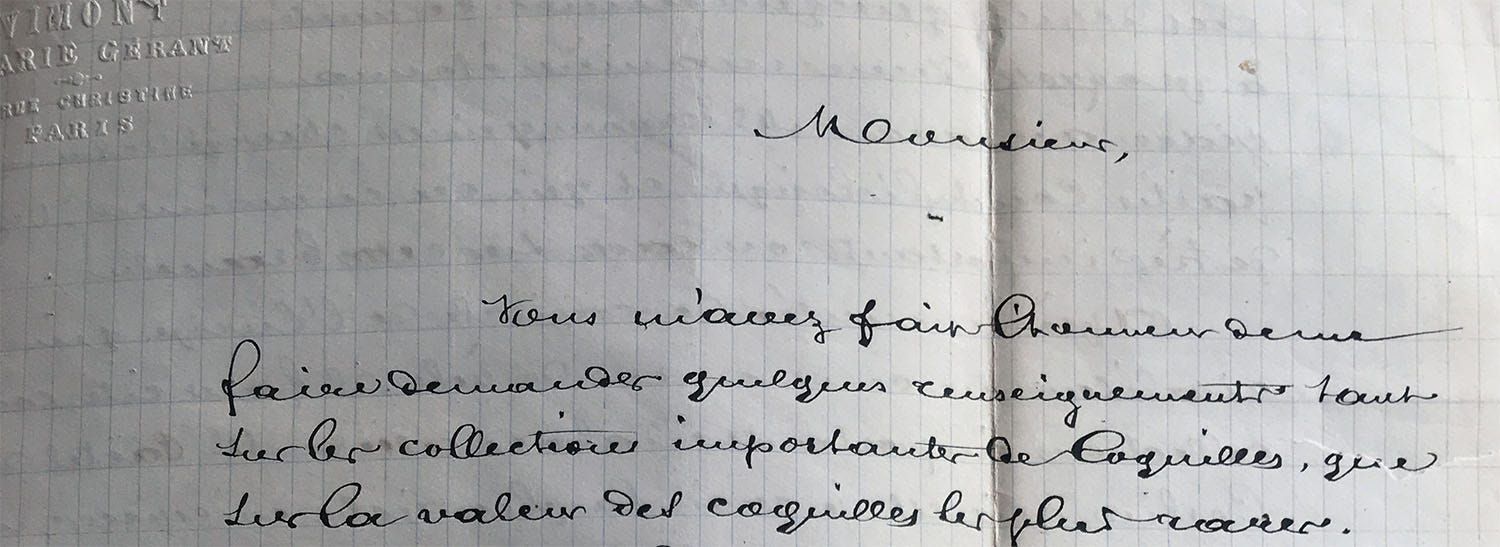 VIMONT
ARIE GÉRANT
RUE CHRISTINE
PARIS
Monsieur,
Vous m'avez fait l'honneur de me
faire demander quelques renseignements tant
sur les collections importantes de Coquilles, que
sur la valeur des coquilles les plus rares.